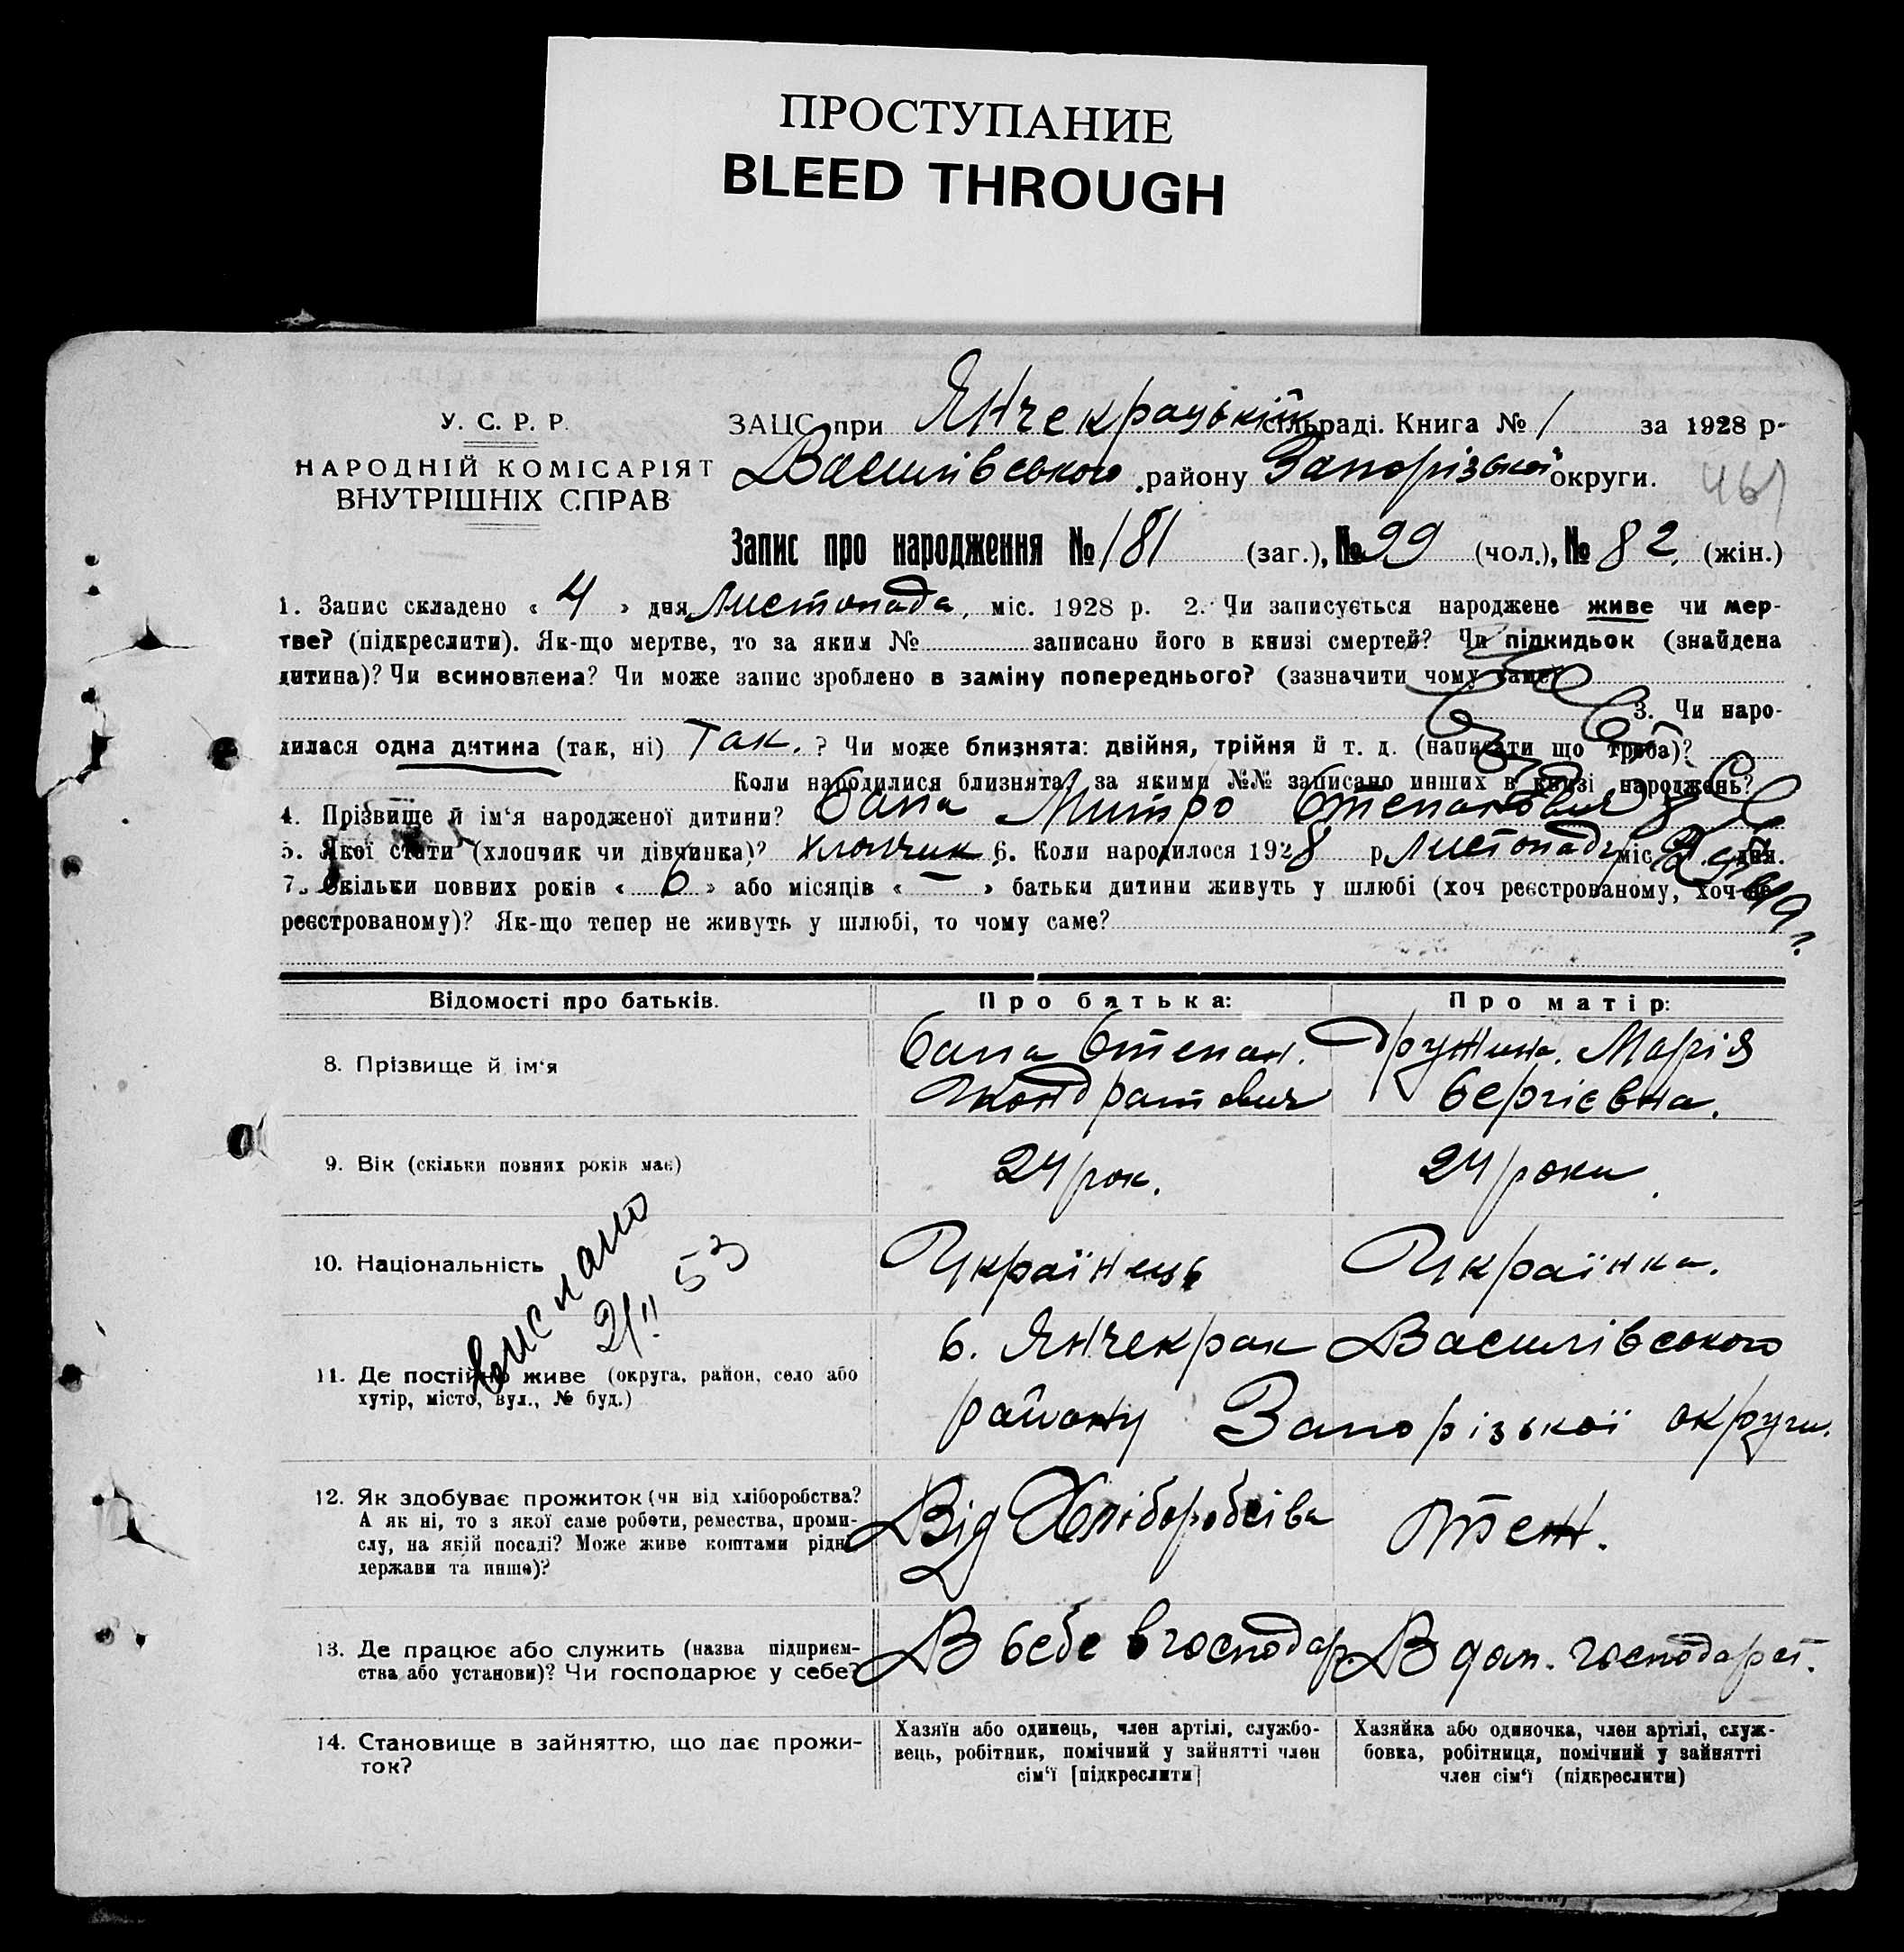 ПРОСТУПАНИЕ
BLEED THROUGH
У. С. Р. Р.
НАРОДНІЙ КОМІСАРІЯТ
ВНУТРІШНІХ СПРАВ
ЗАЦС при Янчекрацькій сільраді. Книга № 1 за 1928 р.
Василівського району Запорізької округи.
461
Запис про народження № 181 (заг.), № 99 (чол.), № 82 (жін.)
1. Запис складено « 4 » дня Листопада міс. 1928 р. 2. Чи записується народжене живе чи мер-
тве? (підкреслити). Як-що мертве, то за яким № записано його в книзі смертей? Чи підкидьок (знайдена
дитина)? Чи всиновлена? Чи може запис зроблено в заміну попереднього? (зазначити чому саме)
3. Чи наро-
дилася одна дитина (так, ні) Так. ? Чи може близнята: двійня, трійня й т. д. (написати що треба)?
Коли народилися близнята, за якими №№ записано инших в книзі народжень?
4. Прізвище й ім'я народженої дитини? Сапа Митро Степанович
5. Якої стати (хлопчик чи дівчинка)? хлопчик 6. Коли народилося 1928 р. Листопад міс. дня.
7. Скільки повних років « 6 » або місяців « — » батьки дитини живуть у шлюбі (хоч реєстрованому, хоч не
реєстрованому)? Як-що тепер не живуть у шлюбі, то чому саме?
Відомості про батьків. Про батька: Про матір:
8. Прізвище й ім'я
Сапа Степан. Дружина. Марія
Кондратович Сергієвна.
9. Вік (скільки повних років має) 24 рок. 24 роки.
10. Національність Українець Українка.
вислано
21/II 53
11. Де постійно живе (округа, район, село або
хутір, місто, вул., № буд.)
С. Янчекрак Василівського
району Запорізької округи.
12. Як здобуває прожиток (чи від хліборобства?
А як ні, то з якої саме роботи, ремества, проми-
слу, на якій посаді? Може живе коштами рідні,
держави та инше)?
Від Хліборобсtва Теж.
13. Де працює або служить (назва підприєм-
ства або установи)? Чи господарює у себе?
В себе в господар. В дом. господарст.
14. Становище в зайняттю, що дає прожи-
ток?
Хазяїн або одинець, член артілі, службо-
вець, робітник, помічний у зайнятті член
сім'ї [підкреслити]
Хазяйка або одиночка, член артілі, служ-
бовка, робітниця, помічний у зайнятті
член сім'ї (підкреслити)